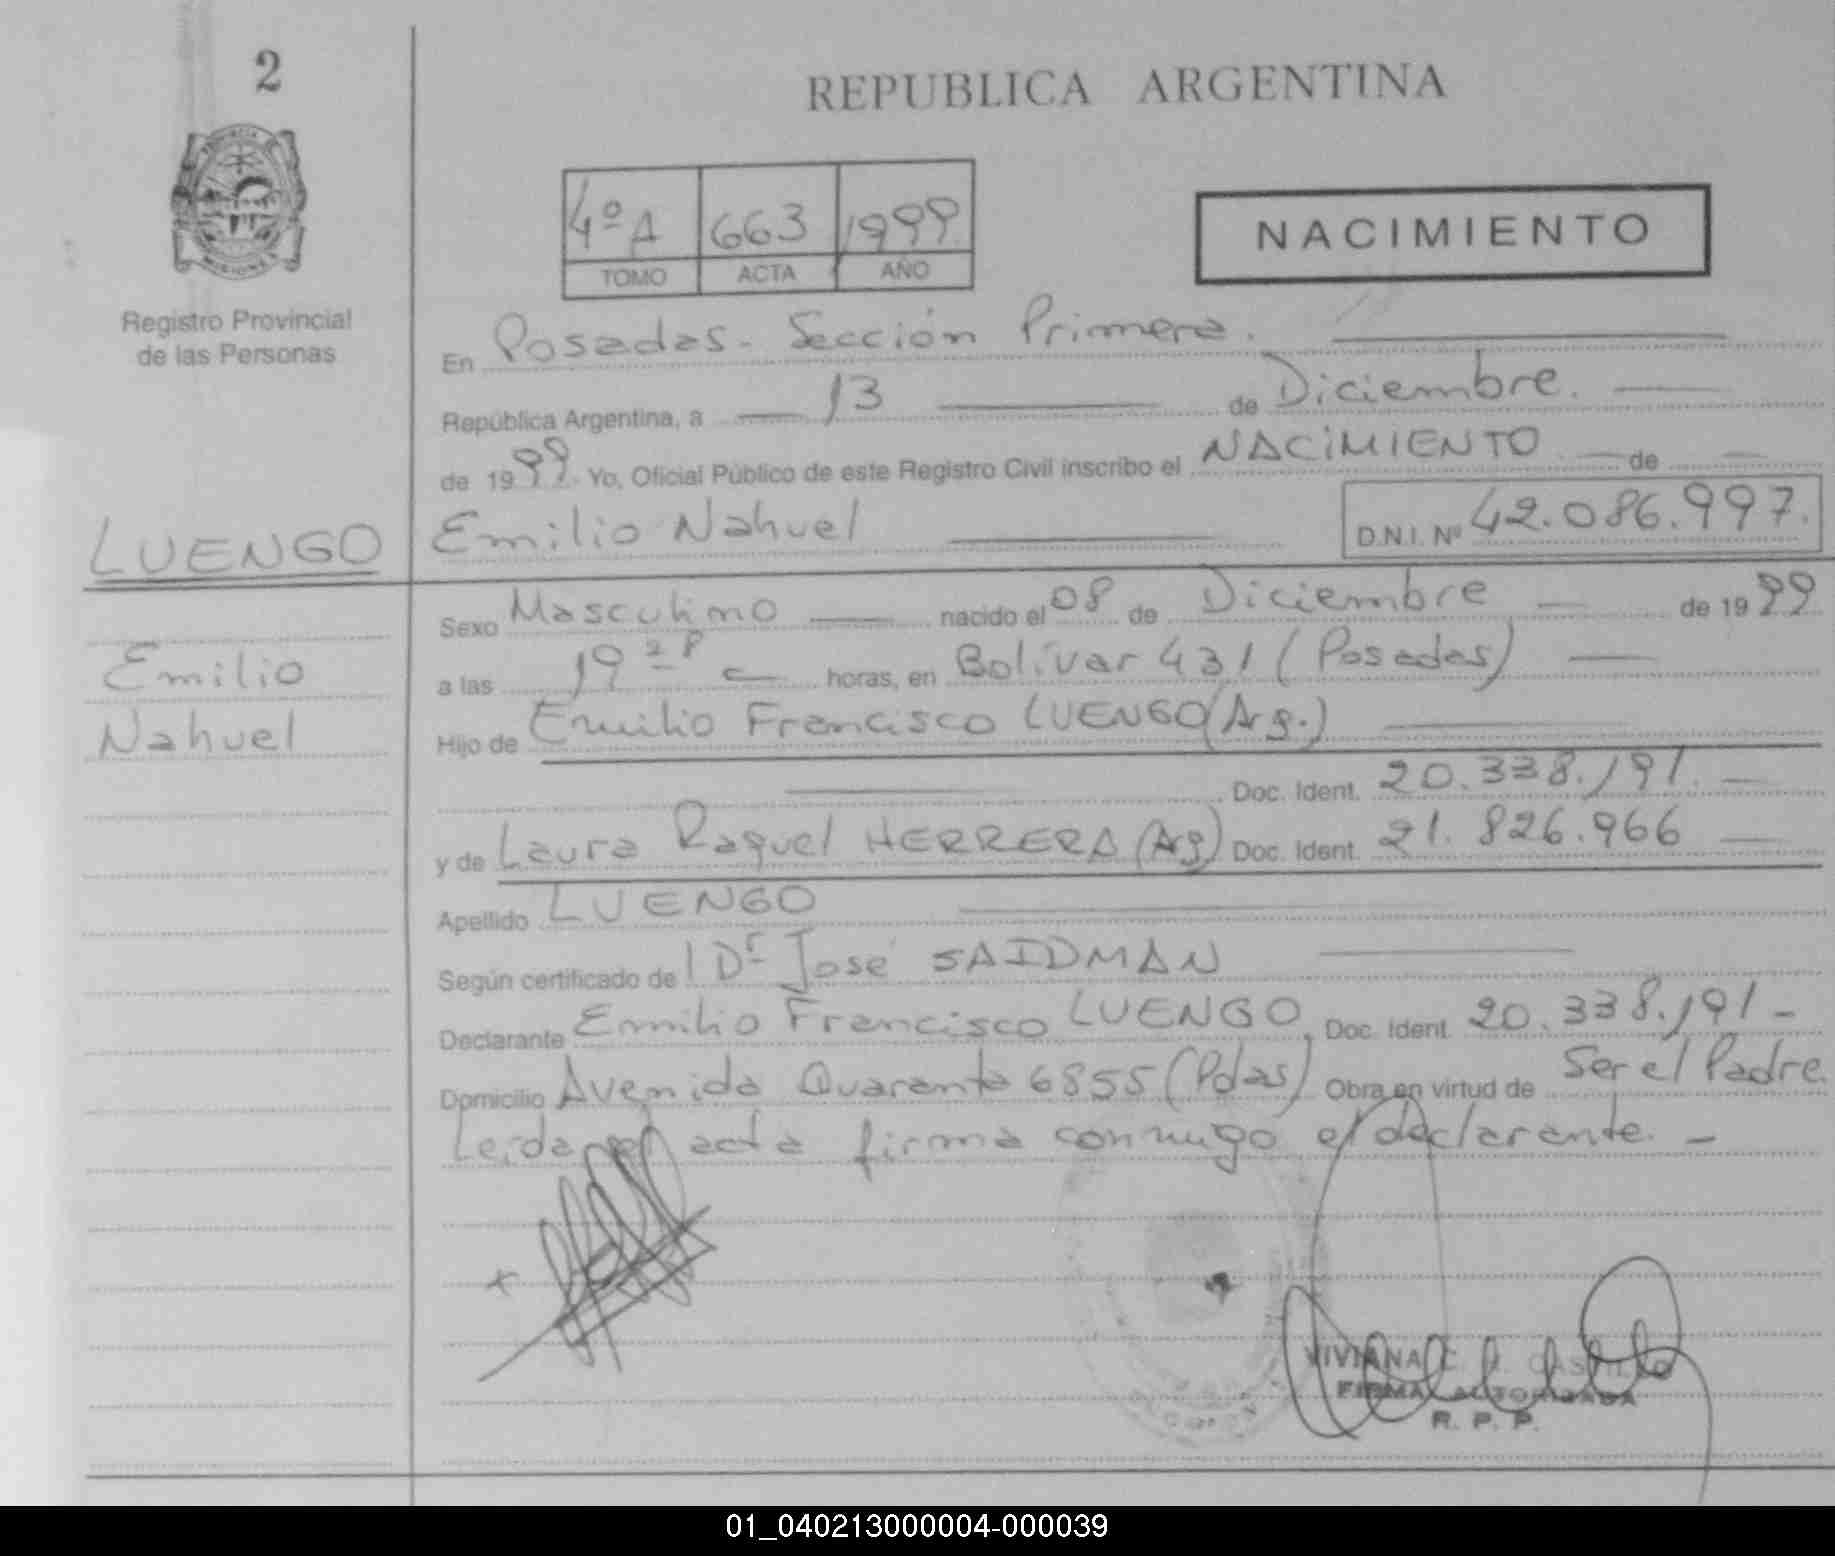 2
REPUBLICA ARGENTINA
PROVINCIA
MISIONES
4º A 663 1999
TOMO ACTA AÑO
NACIMIENTO
Registro Provincial
de las Personas
En Posadas - Sección Primera.
República Argentina, a 13 de Diciembre.
de 1999. Yo, Oficial Público de este Registro Civil inscribo el NACIMIENTO de
LUENGO Emilio Nahuel D.N.I. Nº 42.086.997.
Sexo Masculino nacido el 08 de Diciembre de 1999
Emilio
a las 19 28 horas, en Bolívar 431 (Posadas)
Nahuel
Hijo de Emilio Francisco LUENGO (Arg.)
Doc. Ident. 20.338.191.
y de Laura Raquel HERRERA (Arg) Doc. Ident. 21.826.966
Apellido LUENGO
Según certificado de Dr José SAIDMAN
Declarante Emilio Francisco LUENGO, Doc. Ident. 20.338.191-
Domicilio Avenida Quaranta 6855 (Pdas) Obra en virtud de Ser el Padre.
Leída el acta firma conmigo el declarante. -
VIVIANA
FIRMA AUTORIZADA
R. P. P.
01_040213000004-000039